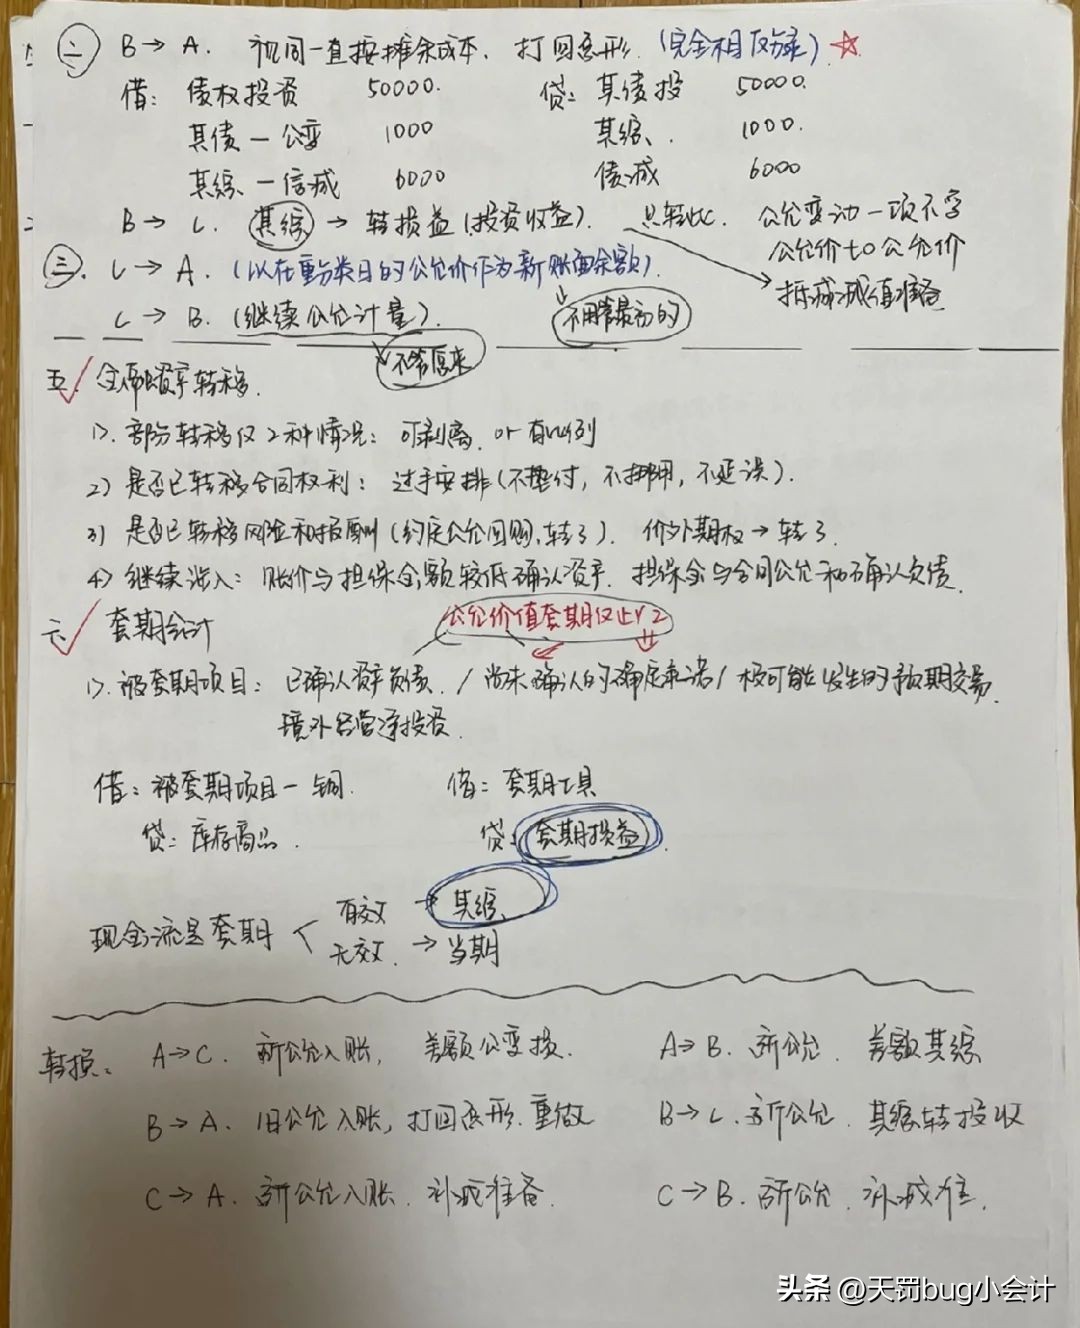 ㊁ B→A. 视同一直按摊余成本. 打回原形.（完全相反分录）☆
借: 债权投资 50000. 贷: 其债投 50000.
其债—公变 1000 其综、. 1000.
其综、—信减 6000 债减 6000
B→C. 其综→转损益(投资收益). 只转此. 公允变动一项不字
公允价to公允价
㊂. C→A.（以在重分类日的公允价作为新账面余额）. 拆减减值准备
C→B.(继续公允计量). 不用管最初的
不管原来
五、金融资产转移.
1). 部份转移仅2种情况: 可剥离 or 有比例
2) 是否已转移合同权利: 过手安排(不垫付, 不挪用, 不延误).
3) 是否已转移风险和报酬(约定公允回购, 转了). 价外期权→转了.
4) 继续涉入: 账价与担保金额较低确认资产. 担保金与合同公允和确认负债.
六、套期会计 公允价值套期仅此2
1). 被套期项目: 已确认资产负债. / 尚未确认的确定承诺 / 极可能发生的预期交易.
境外经营净投资.
借: 被套期项目—铜. 借: 套期工具
贷: 库存商品. 贷: 套期损益.
现金流量套期 < 有效→其综、
无效.→当期
转损: A→C. 新公允入账, 差额公变损. A→B. 新公允. 差额其综
B→A. 旧公允入账, 打回原形. 重做 B→C. 新公允. 其综转投收
C→A. 新公允入账. 补减准备. C→B. 新公允. 补减准.
头条 @天罚bug小会计